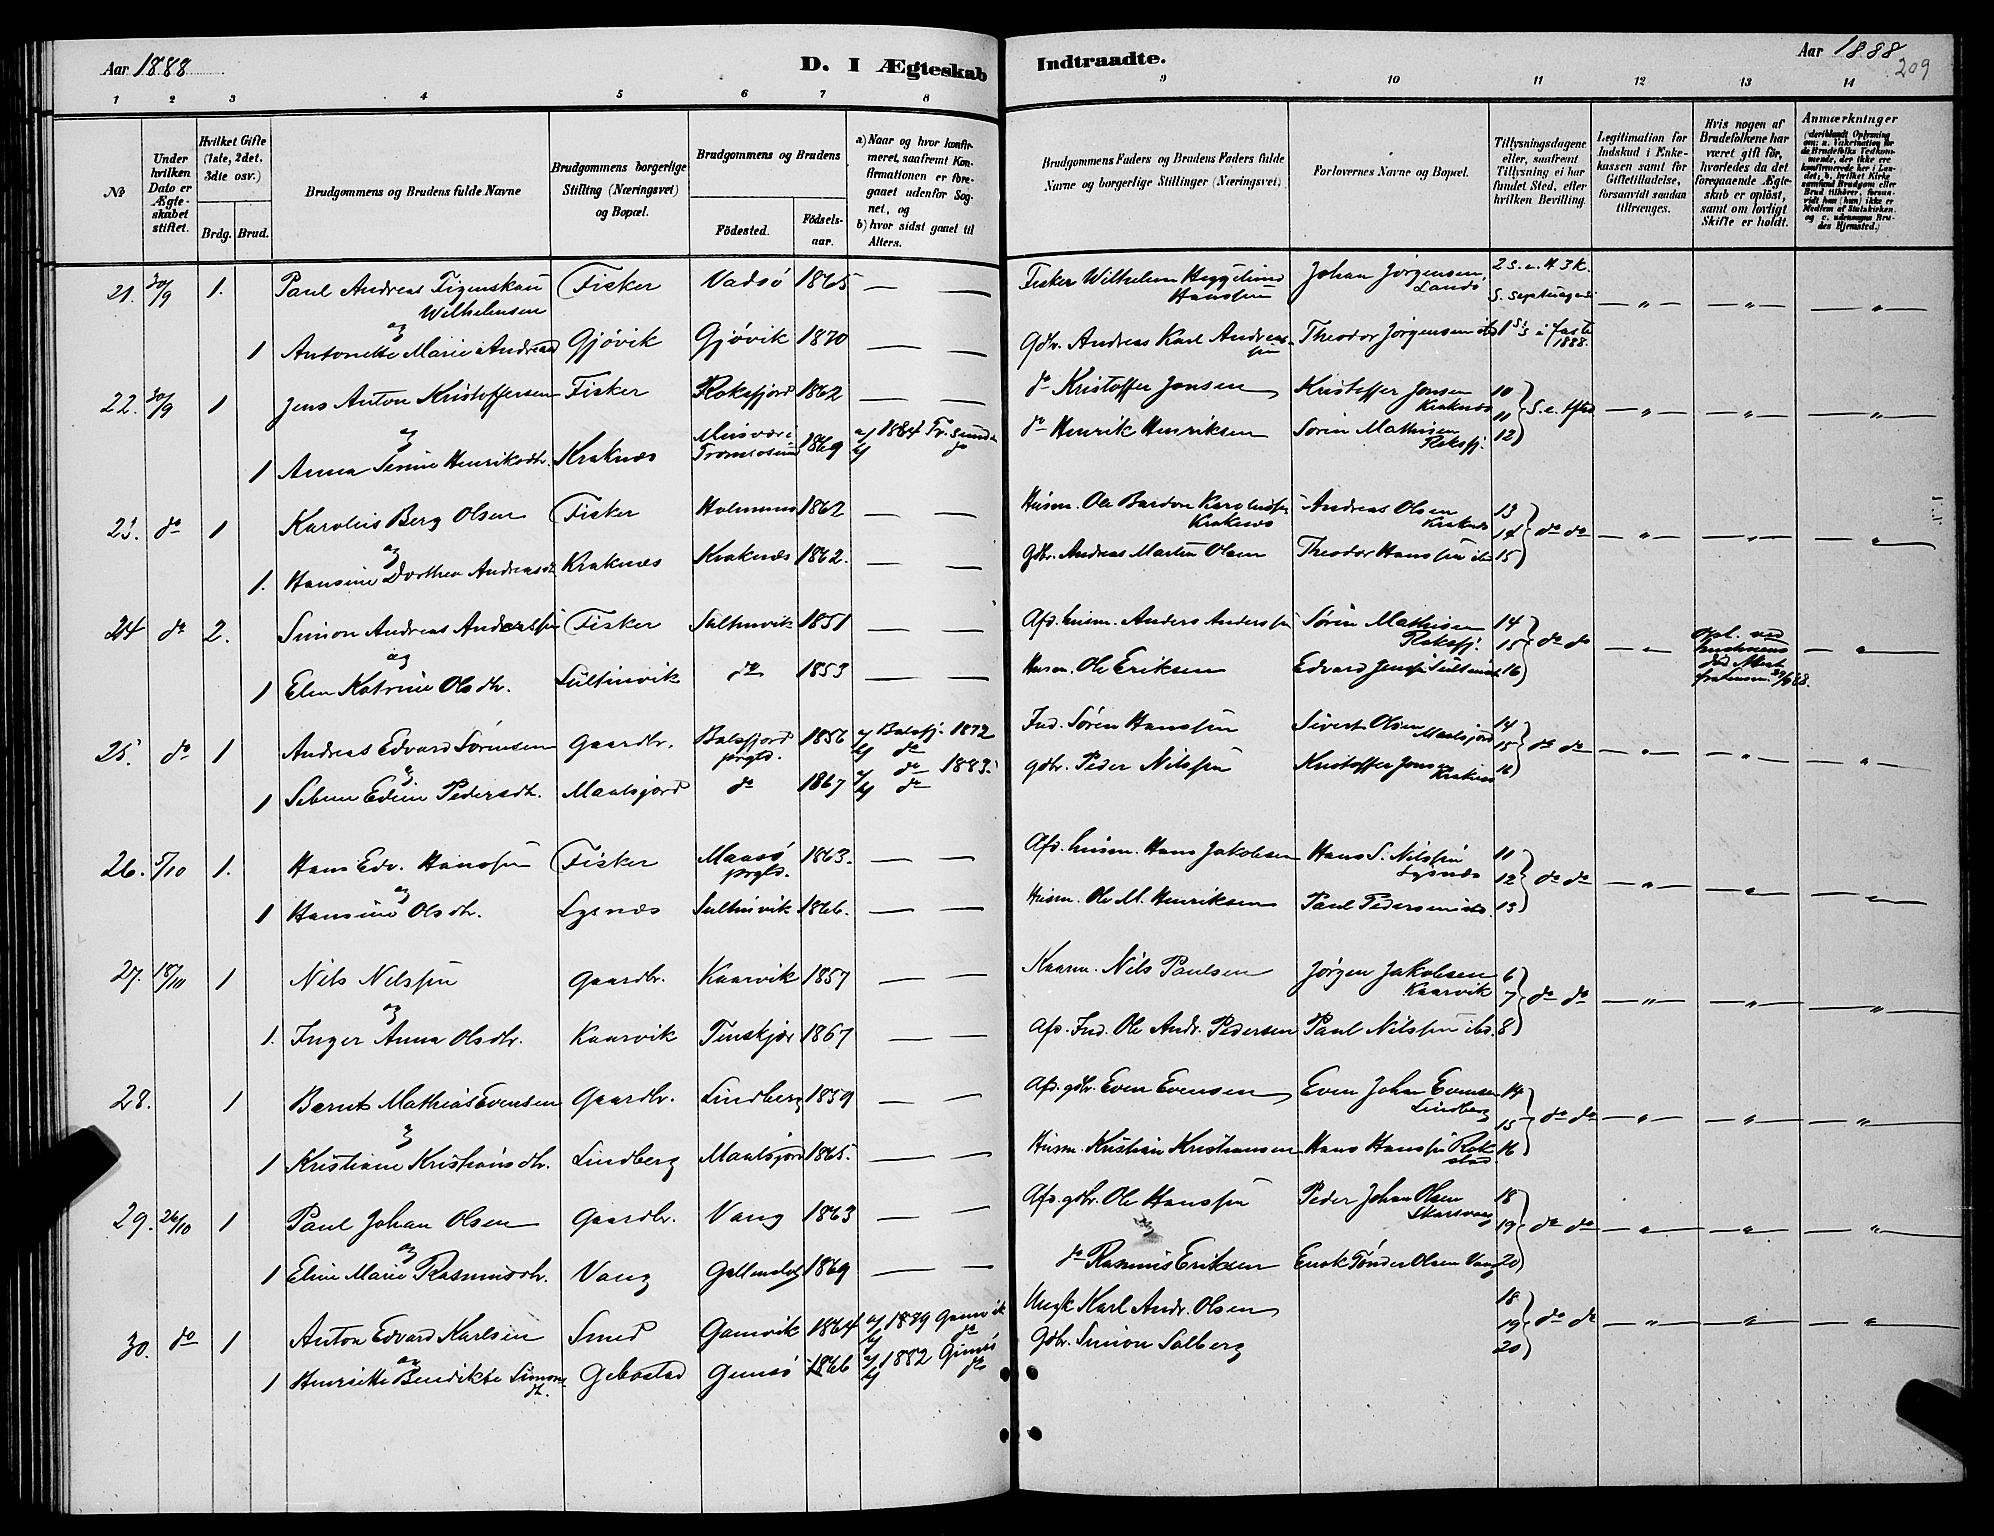 Aar 1888
D. I Ægteskab Indtraadte.
Aar 1888
209
1 2 3 4 5 6 7 8 9 10 11 12 13 14
No
Under hvilken Dato er Ægteskabet stiftet.
Hvilket Gifte (1ste, 2det, 3die osv.)
Brdg. Brud.
Brudgommens og Brudens fulde Navne
Brudgommens borgerlige Stilling (Næringsvei) og Bopæl.
Brudgommens og Brudens
Fødested. Fødselsaar.
a) Naar og hvor konfirmeret, saafremt Konfirmationen er foregaaet udenfor Sognet, og
b) hvor sidst gaaet til Alters.
Brudgommens Faders og Brudens Faders fulde Navne og borgerlige Stillinger (Næringsvei)
Forlovernes Navne og Bopæl.
Tillysningsdagene eller, saafremt Tillysning ei har fundet Sted, efter hvilken Bevilling.
Legitimation for Indskud i Enkekassen samt for Giftetilladelse, forsaavidt saadan tiltrænges.
Hvis nogen af Brudefolkene har været gift før, hvorledes da det foregaaende Ægteskab er opløst, samt om lovligt Skifte er holdt.
Anmærkninger
21. 30/9 1. Paul Andreas Figenskau Wilhelmsen Fisker Vadsö 1865 — — Fisker Wilhelm Heggelund Hanssen Johan Jörgensen, Landö 2 S. e. H 3 K. S. Septuages. — " — — " — — " —
og
1 Antonette Marie Andreasd Gjövik Gjövik 1870 — — Gdbr. Andreas Karl Andreassen Theodor Jörgensen ibd 1 S. i faste 1888.
22. 30/9 1 Jens Anton Kristoffersen Fisker Roksfjord 1862 — — do Kristoffer Jonsen Kristoffer Jonsen Kraknæs 10 11 12 S. e. Tfd — " — — " — — " —
og
1 Anna Serine Henriksdtr. Kraknæs Tromsösund 1869 a/ 1884 Tr.sund b/ do do Henrik Henriksen Sören Mathisen Roksfj.
23. do 1 Karolius Berg Olsen Fisker 1862 — — Husm. Ole Bardon Kraknæs Andreas Olsen Kraknæs 13 14 15 do do — " — — " — — " —
og
1. Hansine Dorthea Andreasd. Kraknæs Kraknæs 1862. — — Gdbr. Andreas Martin Olsen Theodor Hanssen ibd
24 do 2. Simon Andreas Anderssen Fisker Sultinvik 1851 — — Afd. husm. Anders Anderssen Sören Mathisen Roksfj. 14 15 16 do do — " — opl. ved hustruens död — " —
og
1 Elen Katrine Olsdtr. Sultinvik do 1853 — — Husm. Ole Eriksen Edvard Jenssen Sultinvik
25. do 1 Andreas Edvard Sörensen Gaardbr. Balsfjord prgld. 1856 a/ Balsfj. 1872 b/ do Ind. Sören Hanssen Sivert Olsen Maalsjord 14 15 16 do do — " — — " — — " —
og
1 Edine Pedersdtr. Maalsjord do 1867 a/ do 1883. b/ do Gdbr. Peder Nilssen Kristoffer Jonsen Kraknæs
26. 5/10 1. Hans Edv. Hanssen Fisker Maasö prgld. 1863. — — Afd. husm. Hans Jakobsen Hans S. Nilssen Lysnæs 11 12 13 do do — " — — " — — " —
og
1 Hansine Olsdtr. Lysnæs Sultinvik 1866. — — Husm. Ole M. Henriksen Paul Pedersen ibd.
27. 18/10 1 Nils Nilssen Gaardbr. Kaarvik 1857 — — Kaarm. Nils Paulsen Jörgen Jakobsen Kaarvik 6 7 8 do do — " — — " — — " —
og
1. Inger Anna Olsdtr. Kaarvik Tinskjær 1867 — — Afd. Ind. Ole Andr. Pedersen Paul Nilssen ibd.
28. 1 Bernt Mathias Evensen Gaardbr. Lindberg 1859 — — Afd. gdbr. Even Evensen Even Johan Evensen Lindberg 14 15 16 do do — " — — " — — " —
og
1 Kristiane Kristiansdtr. Lindberg Maalsjord 1865. — — Husm. Kristian Kristiansen Hans Hanssen Rokstad
29. 26/10 1 Paul Johan Olsen Gaardbr. Vang 1863 — — Afd. gdbr. Ole Hanssen Peder Johan Olsen Skarsvaag 18 19 20 do do — " — — " — — " —
og
1 Eline Marie Rasmusdtr. Vang 1869 — — do Rasmus Eriksen Enok Tönder Olsen Vang
30. do 1 Anton Edvard Karlsen Smed Gamvik 1864 a/ 1879 Gamvik b/ do Ungk Karl Andr. Olsen 18 19 20 do do — " — — " — — " —
og
1 Henriette Benedikte Simonsdt. Gibostad Gimsö 1866 a/ 1882 Gimsö b/ do Gdbr. Simon Solberg